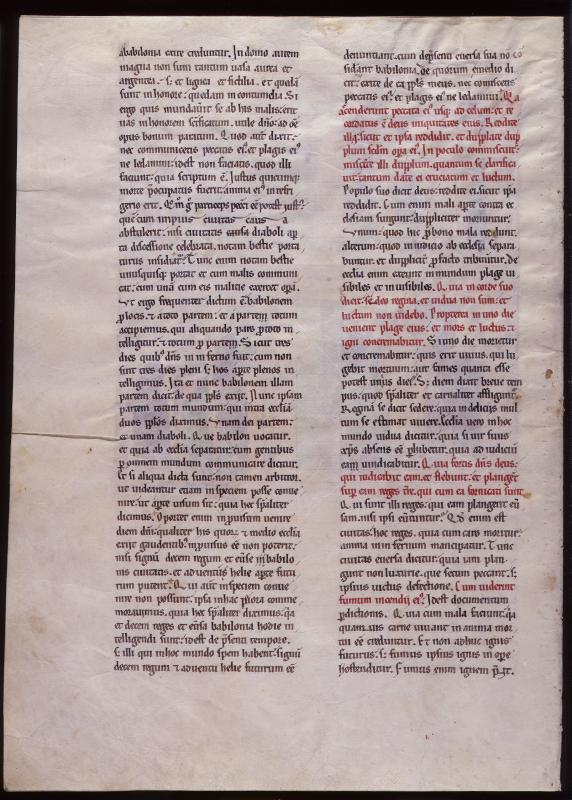 ababilonia exire creduntur. In domo autem
magna non sunt tantum uasa aurea et
argentea. s; et lignea et fictilia. et quedã
sunt in honore: quedam in contumelia. Si
ergo quis mundauit se ab his malis: erit
uas in honorem scificatum. utile dño: ad oẽ
opus bonum paratum. Quod aũt dixit.
nec communicetis peccatis ei⁹. et plagis ei⁹
ne ledamini: idest non faciatis. quod illi
faciunt. quia scriptum ẽ. Iustus quicumq;
morte p̄ocupatus fuerit. anima ei⁹ in refri
gerio erit. 
que cum impius ciuitas
abstulerit: nisi ciuitas diaboli ap̄
ta discessione celebrata. notam bestie porta
turus insidiat᷑. Tunc enim notam bestie
unusquisq; portat et cum malis communi
cat: cum unã cum eis malitie exercet opa.
Vt ergo frequenter dictum ẽ babilonem
p̱ locis. et a toto partem: et a partem totum
accipiemus. qui aliquando pars p̱ toto in
telligitur. et totum p̱ partem. Sicut tres
dies quib⁹ dñs in inferno fuit. cum non
sint tres dies pleni s; hos ap̄te plenos in
telligimus. Ita et nunc babilonem illam
partem dicit. de qua ipłs exiit. Nunc ipsam
partem totum mundum. qui intra eccliã
duos ipłos diximus. Vnam dei partem:
et unam diaboli. Que babilon uocatur.
et quia ab ecclia separatur. cum gentibus
p̱ omnem mundum communicare dicitur.
Et si aliqua dicta sunt. non tamen arbitror.
ut uideantur etiam in speciem posse conue
nire. ut ap̄te uisum sit. quia hec sp̄aliter
dicimus. Oportet enim in p̱uisum uenire
diem dñi. qualiter his quoꝝ e medio ecclia
exiit gaudentib⁹. in p̱uisus eẽ non poterit.
nisi signũ decem regum et euse in babilo
nis ciuitatis. et aduentus helie ap̄te futu
rum putent. Qui aũt in speciem conue
nire non possunt. ipsa in hac p̄iora comme
morauimus. quia hec sp̄aliter diximus. q̃a
et decem reges et eũsa babilonia hodie in
telligendi sunt. idest de p̄senti tempore.
s; illi qui in hoc mundo spem habent. signũ
decem regum et aduentũ helie futurum eẽ
denuntiant. cum dep̄senti euersa sua nõ cõ
sidant babilonia. de quorum emedio di
cit. exite de ea ppłs meus. nec comisceat᷑
peccatis ei⁹. et plagis ei⁹ ne ledamini. Q̃a
ascenderunt peccata ei⁹ usq; ad celum. et re
cordatus ẽ deus iniquitates eius. Reddite
illi. sicut et ipsa reddidit. et duplate dup
plum scđm opa ei⁹. In poculo commiscuit.
miscete illi dupplum. quantum se clarifica
uit. tantum date ei cruciatum et luctum.
Populo suo dicit deus: reddite ei. sicut ip̃a
reddidit. Cum enim mali ap̄te contra ec
clesiam surgunt. duppliciter moriuntur.
Vnum: quod hic p̱ bono mala reddunt.
alterum: quod in iudicio ab ecclesia separa
buntur. et dupplicat p̱ facto tribuitur. De
ecclia enim exeunt in mundum plage ui
sibiles et inuisibiles. Quia in corde suo
dicit. sedeo regina. et uidua non sum: et
luctum non uidebo. Propterea in uno die
uenient plage eius. et mors et luctus: et
igni concremabitur. Si uno die morietur
et concremabitur: quis erit uiuus. qui lu
gebit mortuum. aut fames quanta esse
potest unius diei⁹. S; diem dixit breue tem
pus. quod sp̄aliter et carnaliter affligunt᷑.
Regnã se dicit sedere. quia in delicijs mul
tum se estimat uiuere. Ecclia uero in hoc
mundo uidua dicitur. quia si uir suus
xp̄s absens eẽ p̱hibetur. quia ad iudiciũ
eam uindicabitur. Quia fortis dñs deus:
qui iudicabit eam. et flebunt. et plangent
sup̱ eam reges t̃re. qui cum ea fornicati sunt.
Qui sunt illi reges. qui eam plangent eũ
sam. nisi ipsi eũtuntur. Q̃d enim est
ciuitas: hoc reges. quia cum caro moritur:
anima in infernum mancipatur. Tunc
ciuitas euersa dicitur. quia iam plan
gunt non luxurie. que secum peccant. s;
ipsius uictus defectione. Cum uiderint
fumum incendij ei⁹. Idest documentum
p̱ditionis. Quia cum mala faciunt. q̃a
quam uis carne uiuant in anima mor
tui eẽ creduntur. Et non adhuc ignis
futurus. s; fumus ipsius ignis in ope
hostenditur. Fumus enim ignem